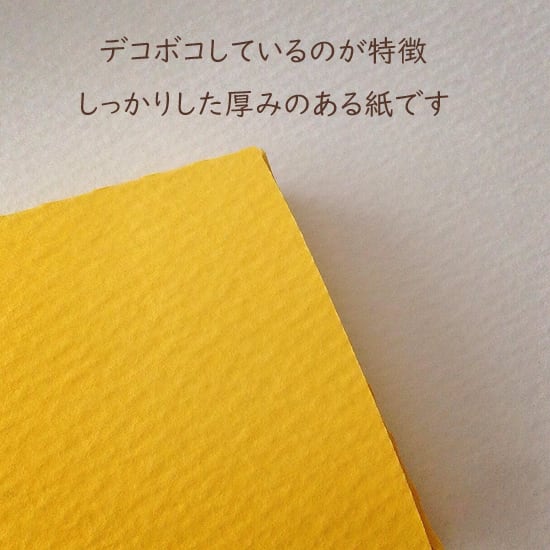 デコボコしているのが特徴
しっかりした厚みのある紙です